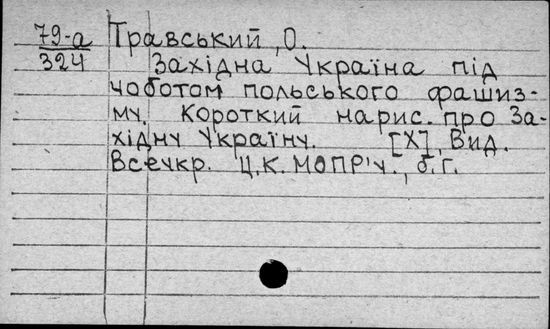 79-а Травський, О.
324 Західна Україна під
чоботом польського фашиз-
му. Короткий нарис про За-
хідну Україну. [Х], Вид.
Всеукр. Ц.К. МОПР'у., б.г.